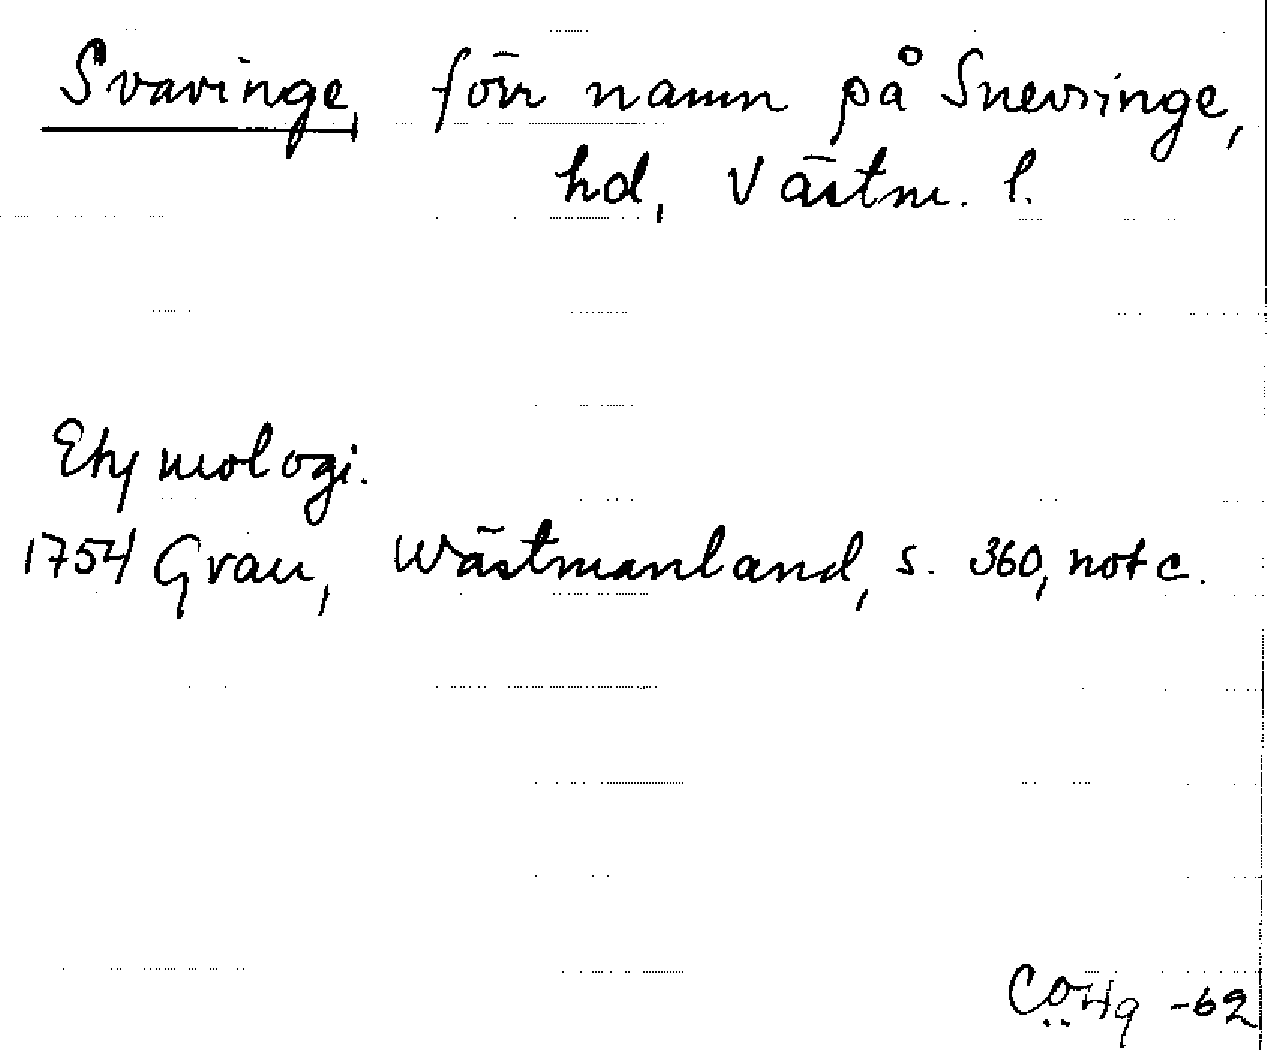 Svavinge, förr namn på Snevringe,
hd, Västm. l.
Etymologi.
1754 Grau, Wästmanland, s. 360, not c.
-62